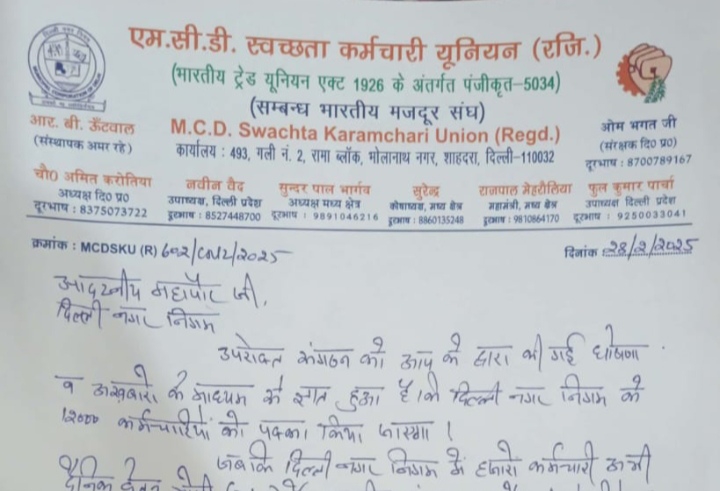 एम.सी.डी. स्वच्छता कर्मचारी यूनियन (रजि.)
(भारतीय ट्रेड यूनियन एक्ट 1926 के अंतर्गत पंजीकृत–5034)
(सम्बन्ध भारतीय मजदूर संघ)
M.C.D. Swachta Karamchari Union (Regd.)
कार्यालय : 493, गली नं. 2, रामा ब्लॉक, भोलानाथ नगर, शाहदरा, दिल्ली–110032
आर. बी. ऊँटवाल
(संस्थापक अमर रहे)
ओम भगत जी
(संरक्षक दि० प्र०)
दूरभाष : 8700789167
चौ० अमित करोतिया
अध्यक्ष दि० प्र०
दूरभाष : 8375073722
नवीन वैद
उपाध्यक्ष, दिल्ली प्रदेश
दूरभाष : 8527448700
सुन्दर पाल भार्गव
अध्यक्ष मध्य क्षेत्र
दूरभाष : 9891046216
सुरेन्द्र
कोषाध्यक्ष, मध्य क्षेत्र
दूरभाष : 8860135248
राजपाल मेहरौलिया
महामंत्री, मध्य क्षेत्र
दूरभाष : 9810864170
फूल कुमार पार्चा
उपाध्यक्ष दिल्ली प्रदेश
दूरभाष : 9250033041
क्रमांक : MCDSKU (R) /2025
दिनांक :28/2/2025
आदरणीय महापौर जी,
दिल्ली नगर निगम
उपरोक्त संगठन को आप के द्वारा की गई घोषणा
व अखबारो के माध्यम से ज्ञात हुआ है कि दिल्ली नगर निगम के
12000 कर्मचारियों को पक्का किया जाएगा।
जबकि दिल्ली नगर निगम में हजारो कर्मचारी अभी
दैनिक वेतन